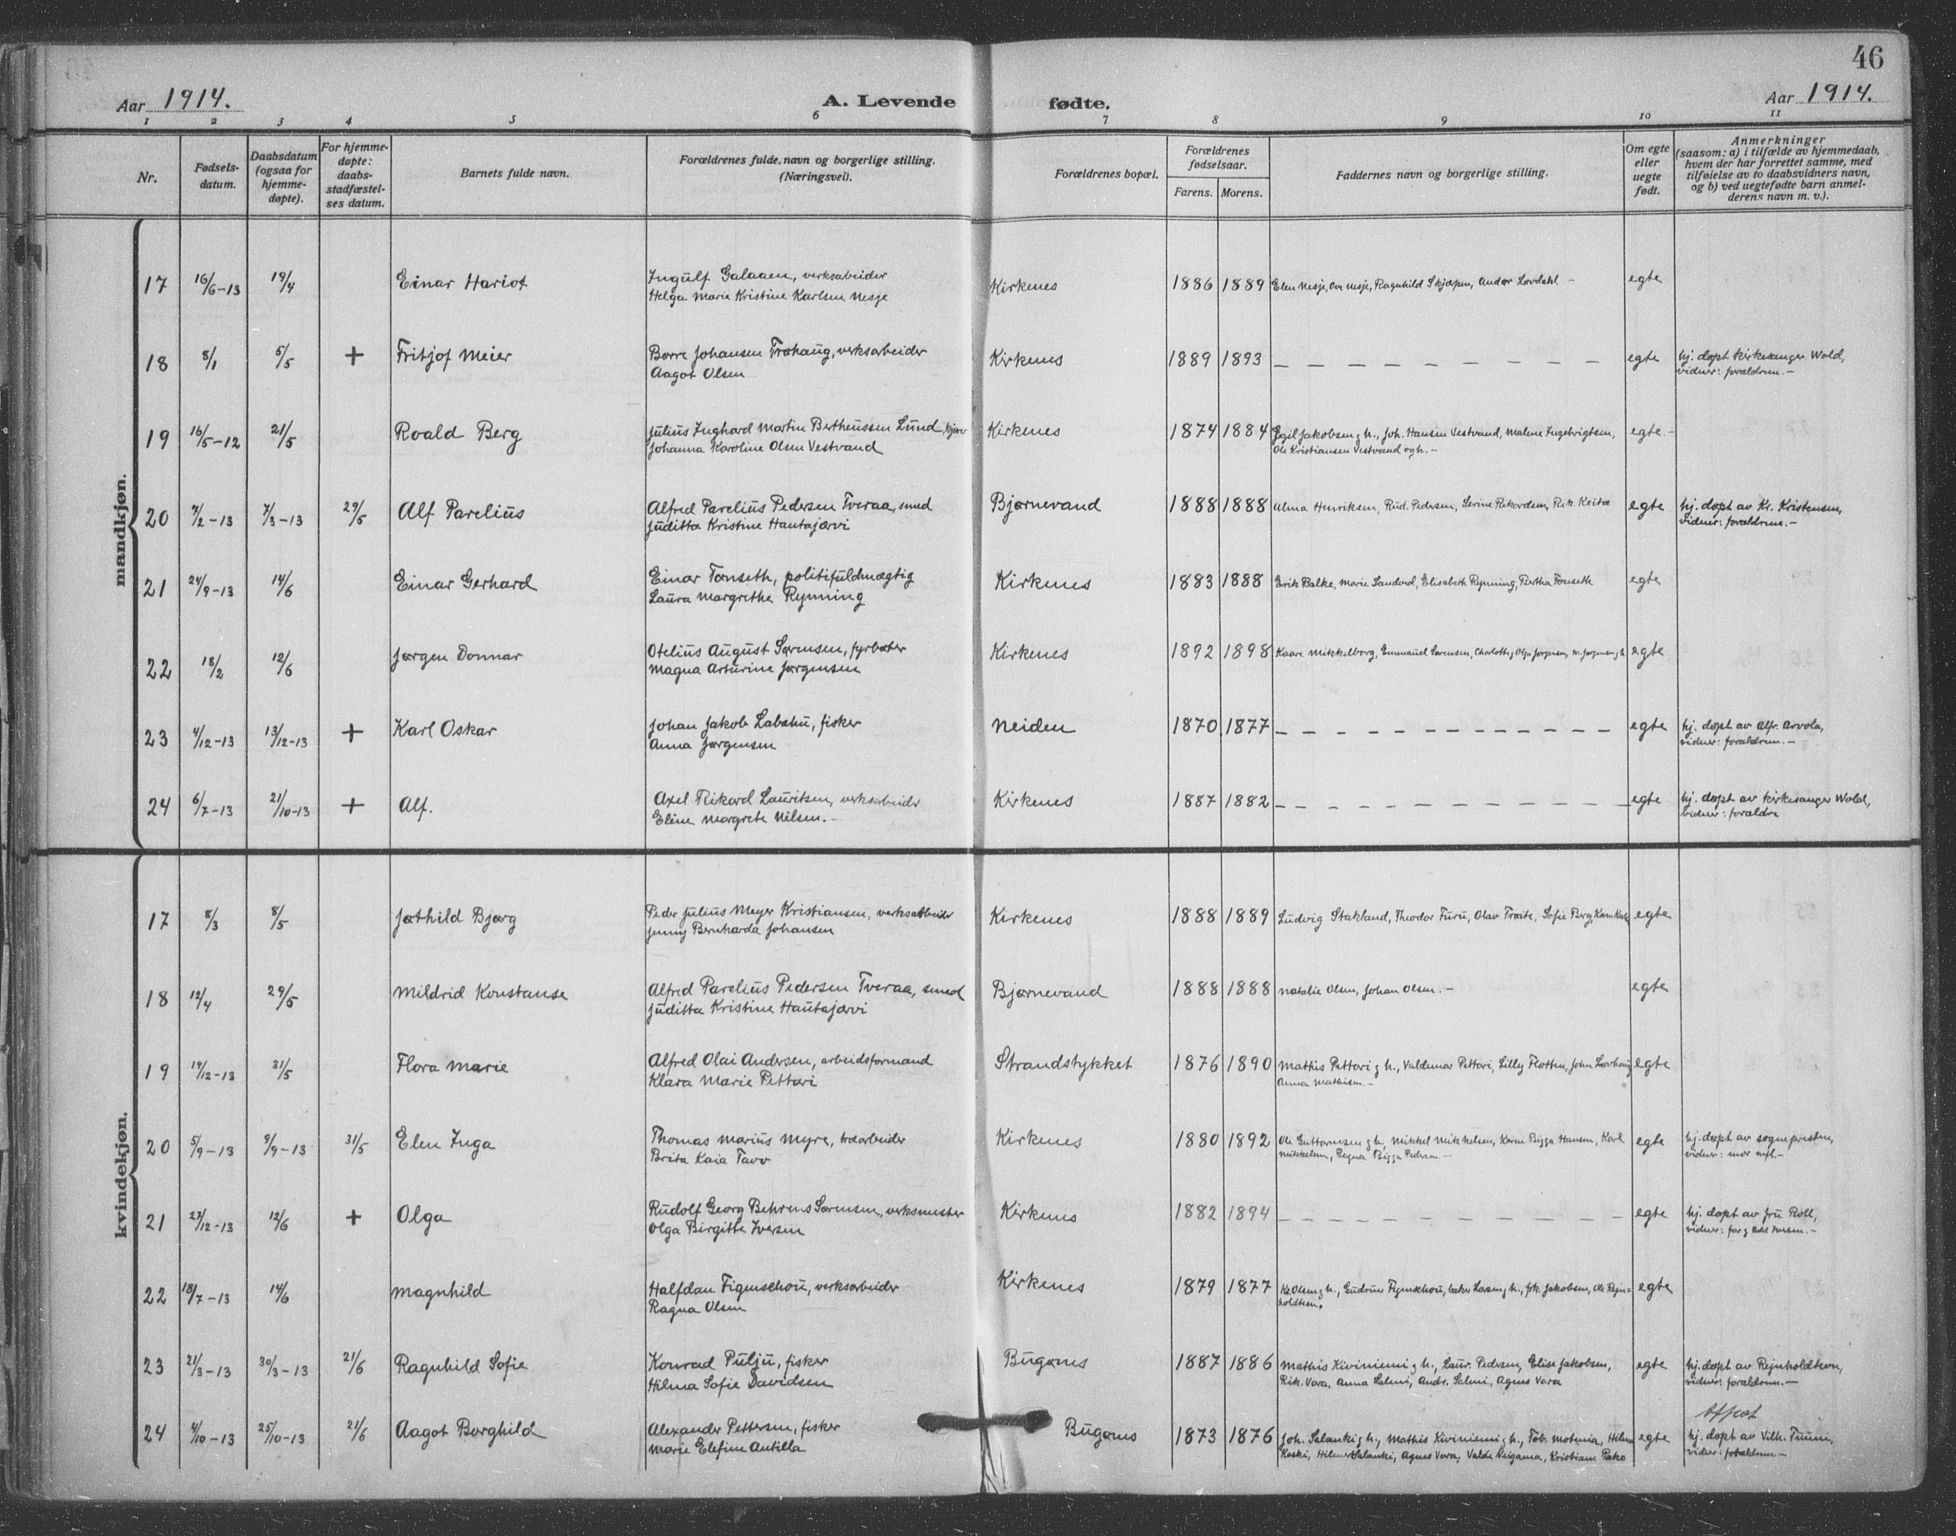 46
Aar 1914.
A. Levende fødte.
Aar 1914.
1 2 3 4 5 6 7 8 9 10 11
Nr.
Fødsels-
datum.
Daabsdatum
(ogsaa for
hjemme-
døpte).
For hjemme-
døpte:
daabs-
stadfæstel-
ses datum.
Barnets fulde navn.
Forældrenes fulde navn og borgerlige stilling.
(Næringsvei).
Forældrenes bopæl.
Forældrenes
fødselsaar.
Farens. Morens.
Faddernes navn og borgerlige stilling.
Om egte
eller
uegte
født.
Anmerkninger
(saasom: a) i tilfælde av hjemmedaab,
hvem der har forrettet samme, med
tilføielse av to daabsvidners navn,
og b) ved uegtefødte barn anmel-
derens navn m. v.).
mandkjøn.
17 16/6-13 19/4 Einar Hariot Ingulf Galaaen, verksarbeider Kirkenes 1886 1889 Elen Nesje, Ove Nesje, Ragnhild Skjæpen, Andor Løvdahl – egte
Helga Marie Kristine Karlsen Nesje
18 8/1 5/5 + Fritjof Meier Borre Johansen Trøhaug, verksarbeider Kirkenes 1889 1893 — — — egte hj. døpt kirkesanger Wold,
Aagot Olsen vidner: forældrene.–
19 16/5-12 21/5 Roald Berg Julius Inghard Martin Bertheussen Lund, Kirkenes 1874 1884 Egil Jakobsen g h., Joh. Hansen Vestvand, Malene Ingebrigtsen, egte.-
Johanna Karoline Olsen Vestvand Ole Kristiansen Vestvand og h.–
20 7/2-13 7/3-13 29/5 Alf Parelius Alfred Parelius Pedersen Tveraa, smed Bjørnevand 1888 1888 Alma Henriksen, Rud. Pedersen, Serine Rikardsen, Rik. egte hj. døpt av Kr. Kristensen,
Juditta Kristine Hautajærvi vidner: forældrene.–
21 24/9-13 14/6 Einar Gerhard Einar Tønseth, politifuldmægtig Kirkenes 1883 1888 Erik Balke, Marie Sandved, Elisabeth Rynning, Bertha Tønseth egte
Laura Margrethe Rynning
22 18/2 12/6 Jørgen Donnar Otelius August Sørensen, fyrbøter Kirkenes 1892 1898 Kaare Mikkelborg, Emmanuel Sørensen, Charlotte, Olga Jørgensen, M. Jørgensen egte
Magna Arturine Jørgensen
23 4/12-13 13/12-13 + Karl Oskar Johan Jakob Labahu, fisker Neiden 1870 1877 — — — egte hj. døpt av Alfr. Arvola,
Anna Jørgensen vidner: forældrene.–
24 6/7-13 21/10-13 + Alf. Axel Rikard Lauritsen, verksarbeider Kirkenes 1887 1882 — — — egte hj. døpt av kirkesanger Wold,
Eline Margrete Nilsen.– vidner: forældre
kvindekjøn.
17 8/3 8/5 Jøthild Bjørg Peder Julius Meyer Kristiansen, verksarbeider Kirkenes 1888 1889 Ludvig Stakland, Theodor Furu, Olav Trøite, Sofie Berg, egte
Jenny Bernharda Johansen
18 12/4 29/5 Mildrid Konstanse Alfred Parelius Pedersen Tveraa, smed Bjørnevand 1888 1888 Natalie Olsen, Johan Olsen.– egte
Juditta Kristine Hautajærvi
19 19/12-13 31/5 Flora Marie Alfred Olai Andersen, arbeidsformand Strandstykket 1876 1890 Mathis Pettari g h., Valdemar Pettari, Lilly Flotten, John egte
Klara Marie Pettari Anna Mathisen.–
20 5/9-13 9/9-13 31/5 Elen Inga Thomas Marius Myre, træarbeider Kirkenes 1880 1892 Ole Guttormsen g h., Mikkel Mikkelsen, Karen Bigga Hansen, Karl egte hj. døpt av sognepresten,
Brita Kaia Tavo Mikkelsen, Ragna Bigga Pedersen– vidner: mor
21 27/12-13 12/6 + Olga Rudolf Georg Behrens Sørensen, verksmester Kirkenes 1882 1894 — — — egte hj. døpt av fru Roll,
Olga Birgitte Iversen vidner: far g Iversen.–
22 18/7-13 14/6 Magnhild Halfdan Figenschou, verksarbeider Kirkenes 1879 1877 Olsen g h., Gudrun Figenschou, baker Larsen g h., frk. Jakobsen, Ole Rejn- egte
Ragna Olsen holdtsen.
23 21/3-13 30/3-13 21/6 Ragnhild Sofie Konrad Pulju, fisker Bugønes 1887 1886 Mathis Kiviniemi g h., Laur. Pedersen, Elise Jakobsen, egte hj. døpt av Rejnholdtsen,
Hilma Sofie Davidsen Rik. Vara, Anna Salmi, Andr. Salmi, Agnes Vara vidner: forældrene.–
24 4/10-13 25/10-13 21/6 Aagot Borghild Alexander Pettersen, fisker Bugønes 1873 1876 Joh. Salanki g h., Mathis Kiviniemi g h., Tob. Motenia, Hilma egte hj. døpt av Vilh. Tuuri,
Marie Elefine Antilla Koski, Hilmer Salanki, Agnes Vara, Valde Keigama, Kristiane Pako vidner: forældrene–